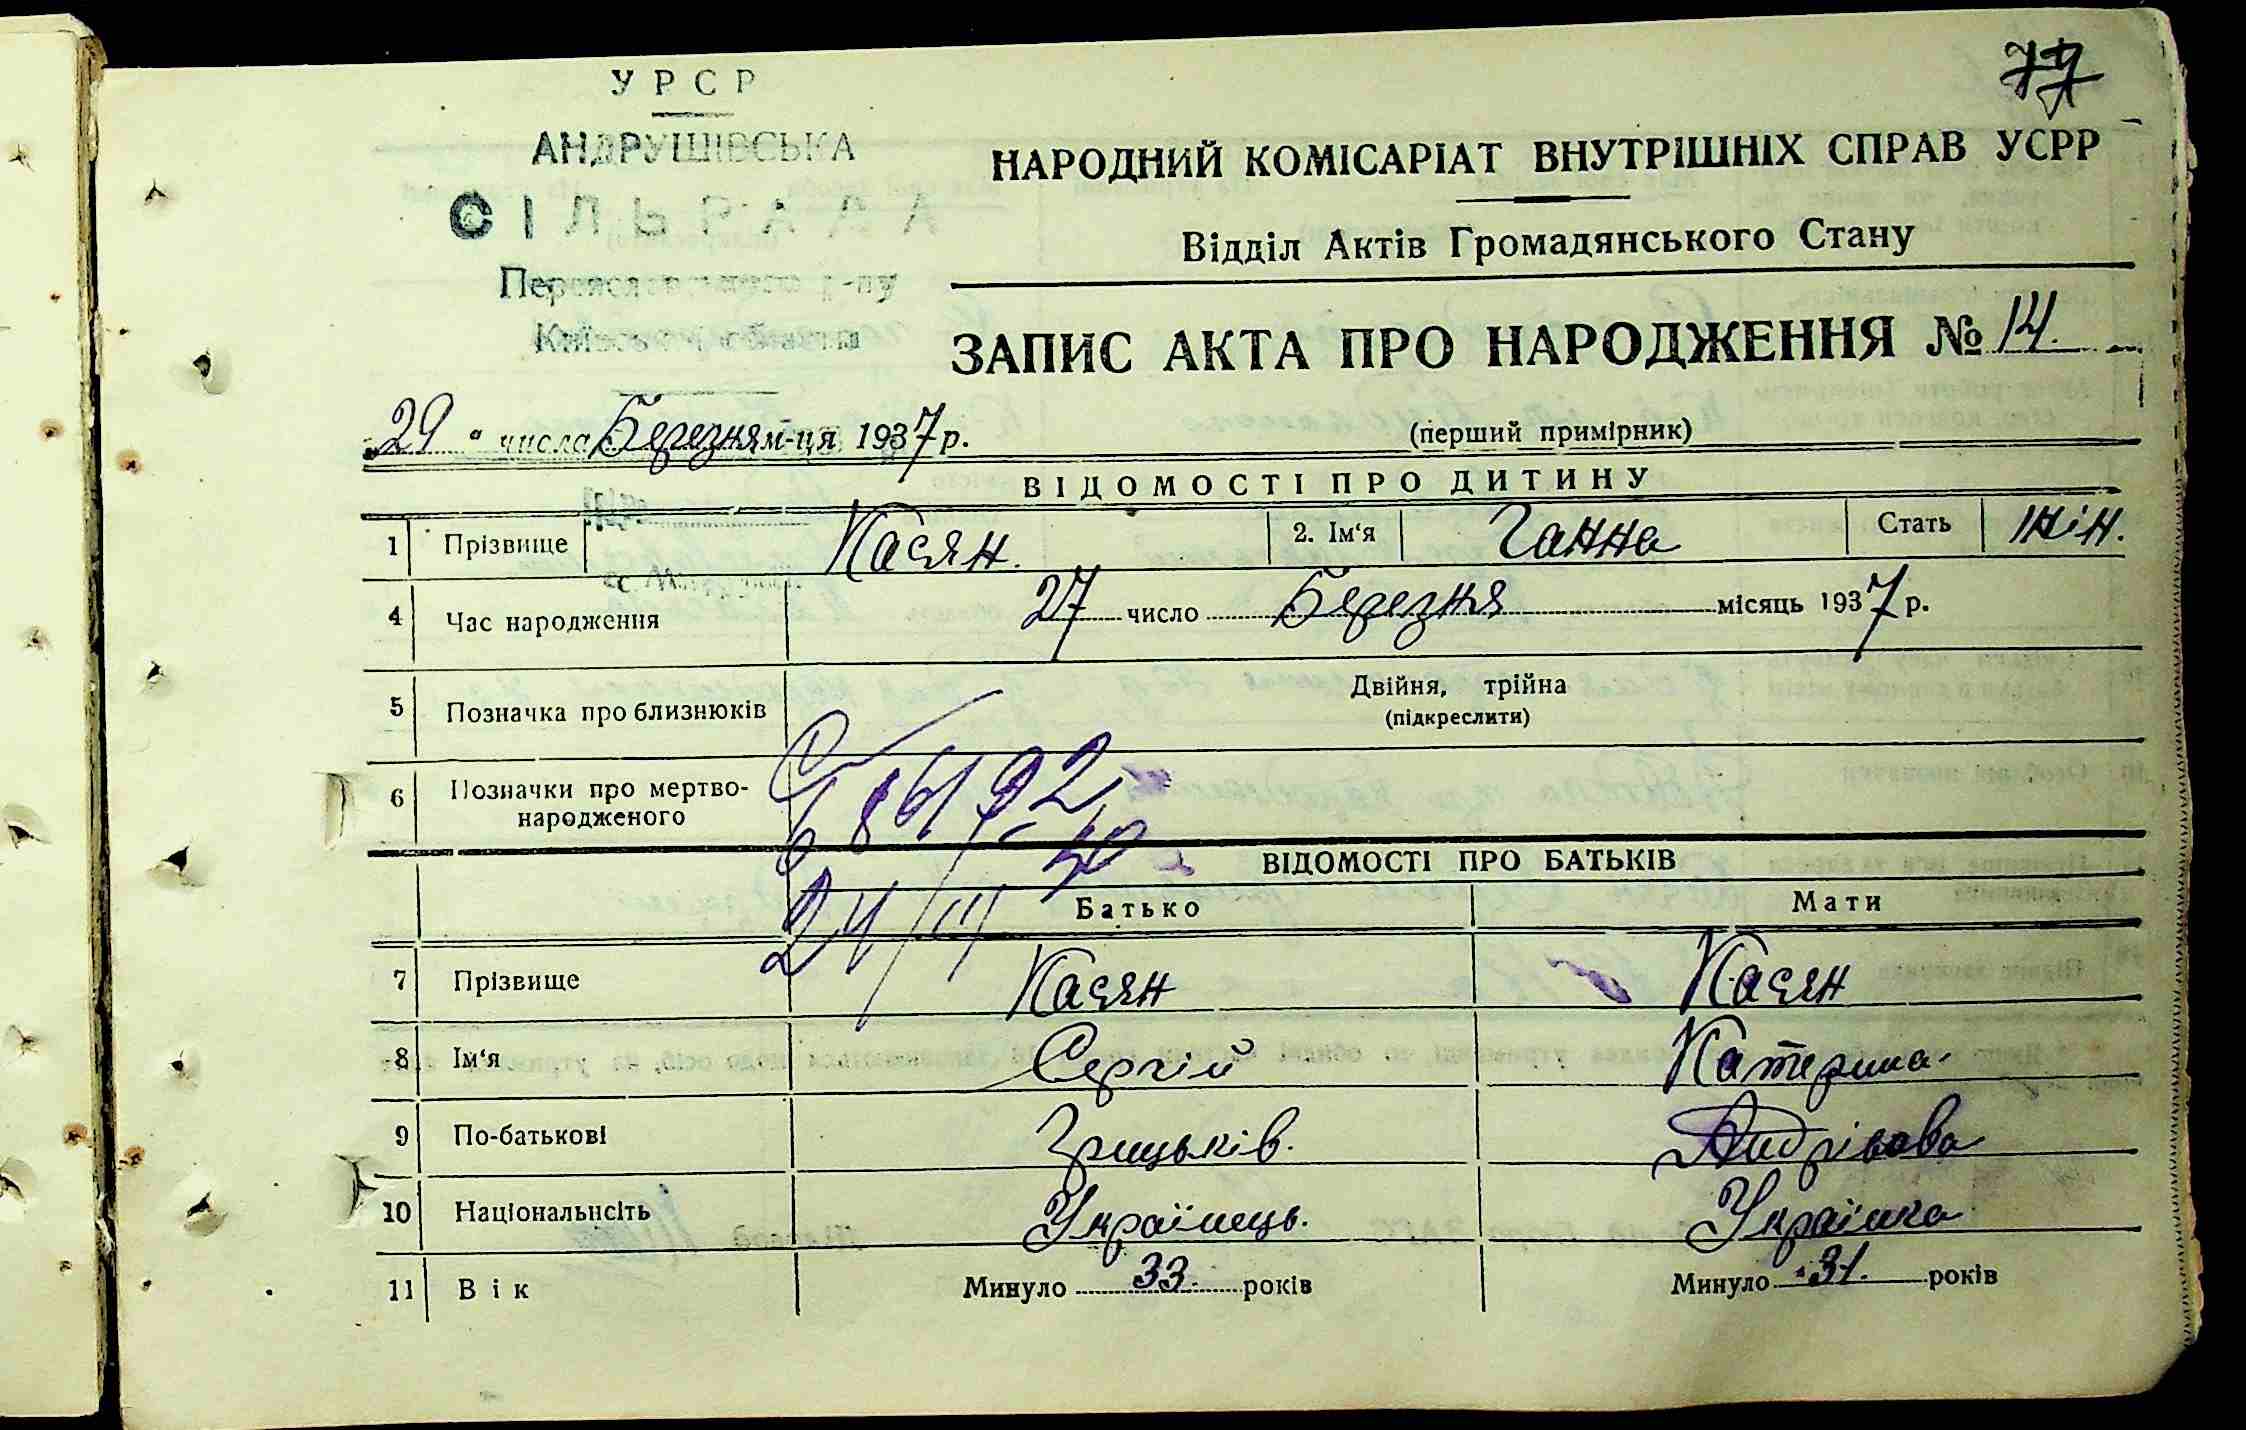 У Р С Р
АНДРУШІВСЬКА
СІЛЬРАДА
НАРОДНИЙ КОМІСАРІАТ ВНУТРІШНІХ СПРАВ УСРР
Відділ Актів Громадянського Стану
ЗАПИС АКТА ПРО НАРОДЖЕННЯ № 14.
„29" числа Березня м-ця 1937 р.
(перший примірник)
ВІДОМОСТІ ПРО ДИТИНУ
1 Прізвище Касян. 2. Ім'я Ганна Стать жін.
4 Час народження 27 число Березня місяць 1937 р.
5 Позначка про близнюків Двійня, трійна
(підкреслити)
6 Позначки про мертво-
народженого
ВІДОМОСТІ ПРО БАТЬКІВ
Батько Мати
7 Прізвище Касян Касян
8 Ім'я Сергій Катерина.
9 По-батькові Грицьків. Андріївова
10 Національнсіть Українець. Українка
11 Вік Минуло 33. років Минуло 31. років